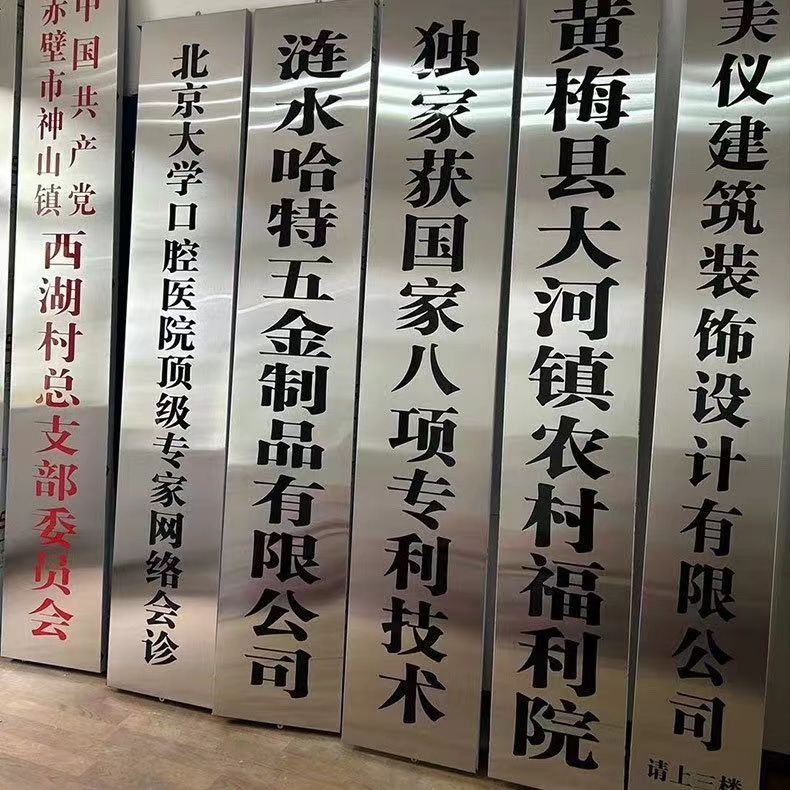 中国共产党
赤壁市神山镇
西湖村总支部委员会
北京大学口腔医院顶级专家网络会诊
涟水哈特五金制品有限公司
独家获国家八项专利技术
黄梅县大河镇农村福利院
美仪建筑装饰设计有限公司
请上三楼